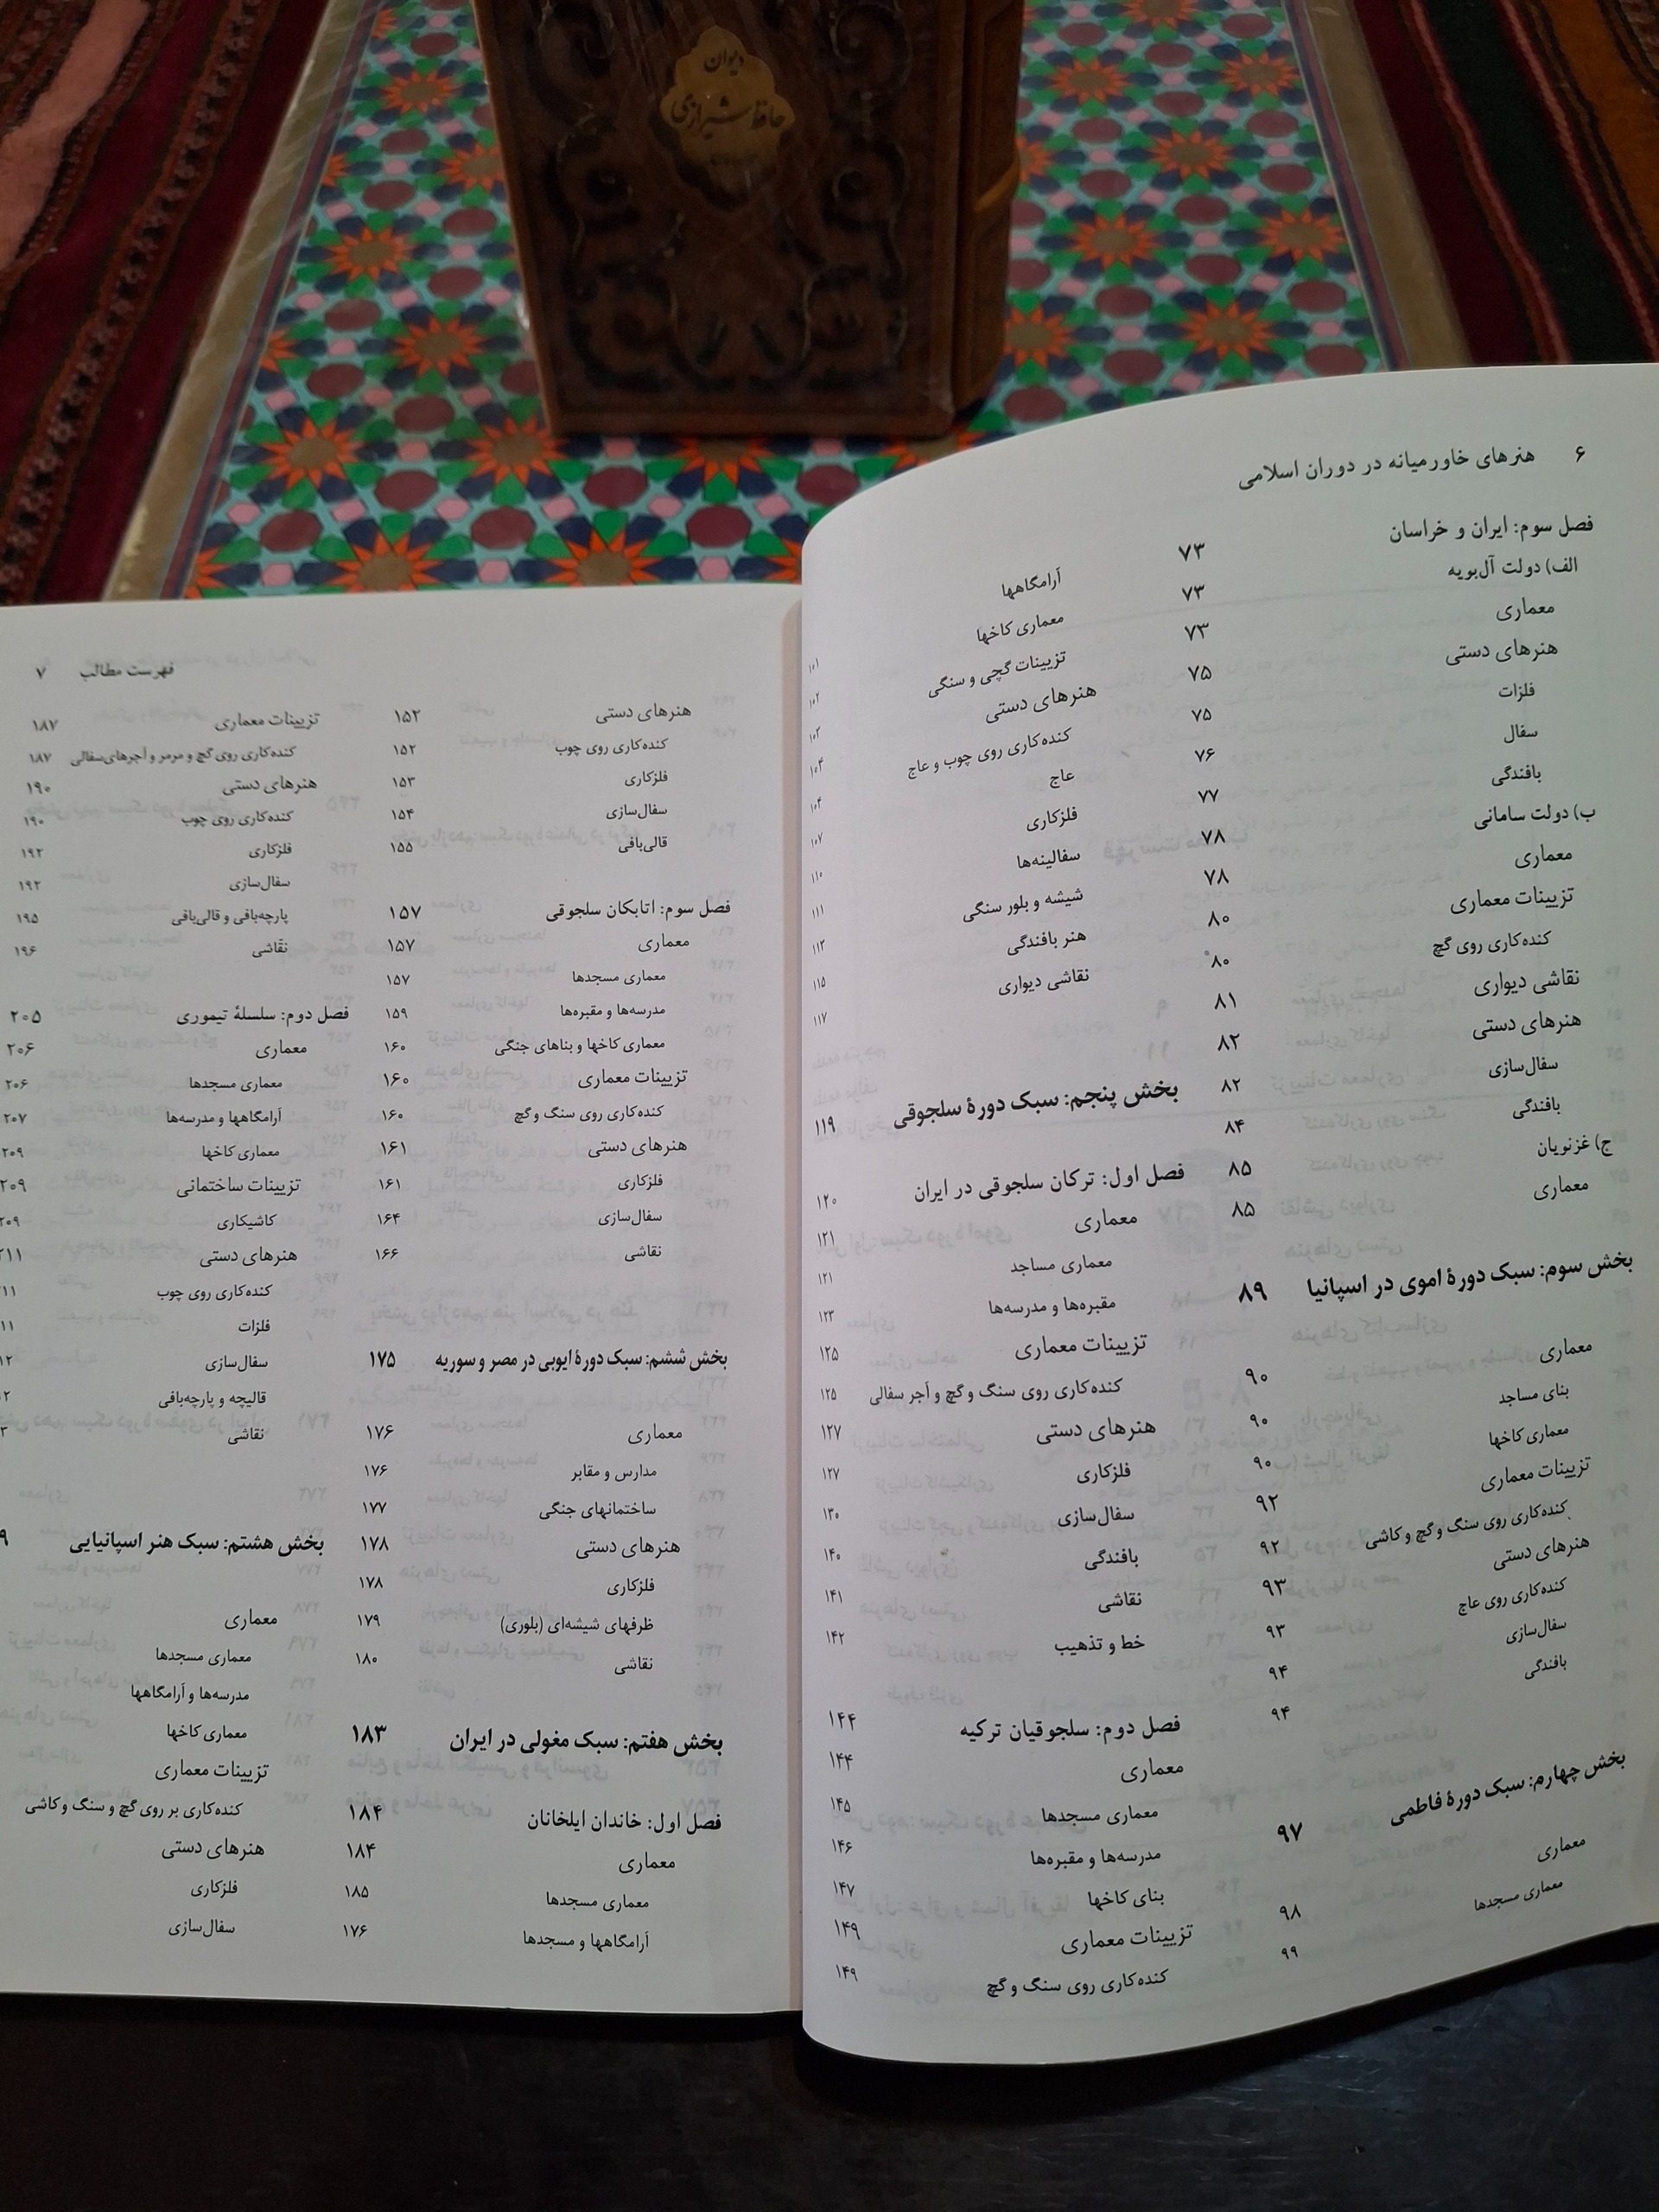 دیوان
حافظ شیرازی
۶ هنرهای خاورمیانه در دوران اسلامی
فصل سوم: ایران و خراسان ۷۳
الف) دولت آل‌بویه ۷۳
معماری ۷۳
هنرهای دستی ۷۵
فلزات ۷۵
سفال ۷۶
بافندگی ۷۷
ب) دولت سامانی ۷۸
معماری ۷۸
تزیینات معماری ۸۰
کنده‌کاری روی گچ ۸۰
نقاشی دیواری ۸۱
هنرهای دستی ۸۲
سفال‌سازی ۸۲
بافندگی ۸۴
ج) غزنویان ۸۵
معماری ۸۵
بخش سوم: سبک دورۀ اموی در اسپانیا ۸۹
معماری ۹۰
بنای مساجد ۹۰
معماری کاخها ۹۰
تزیینات معماری ۹۲
کنده‌کاری روی سنگ و گچ و کاشی ۹۲
هنرهای دستی ۹۳
کنده‌کاری روی عاج ۹۳
سفال‌سازی ۹۴
بافندگی ۹۴
بخش چهارم: سبک دورۀ فاطمی ۹۷
معماری ۹۸
معماری مسجدها ۹۹
آرامگاهها ۱۰۱
معماری کاخها ۱۰۲
تزیینات گچی و سنگی ۱۰۳
هنرهای دستی ۱۰۴
کنده‌کاری روی چوب و عاج ۱۰۴
عاج ۱۰۷
فلزکاری ۱۱۰
سفالینه‌ها ۱۱۱
شیشه و بلور سنگی ۱۱۳
هنر بافندگی ۱۱۵
نقاشی دیواری ۱۱۷
بخش پنجم: سبک دورۀ سلجوقی ۱۱۹
فصل اول: ترکان سلجوقی در ایران ۱۲۰
معماری ۱۲۱
معماری مساجد ۱۲۱
مقبره‌ها و مدرسه‌ها ۱۲۳
تزیینات معماری ۱۲۵
کنده‌کاری روی سنگ و گچ و آجر سفالی ۱۲۵
هنرهای دستی ۱۲۷
فلزکاری ۱۲۷
سفال‌سازی ۱۳۰
بافندگی ۱۴۰
نقاشی ۱۴۱
خط و تذهیب ۱۴۲
فصل دوم: سلجوقیان ترکیه ۱۴۴
معماری ۱۴۴
معماری مسجدها ۱۴۵
مدرسه‌ها و مقبره‌ها ۱۴۶
بنای کاخها ۱۴۷
تزیینات معماری ۱۴۹
کنده‌کاری روی سنگ و گچ ۱۴۹
فهرست مطالب ۷
هنرهای دستی ۱۵۲
کنده‌کاری روی چوب ۱۵۲
فلزکاری ۱۵۳
سفال‌سازی ۱۵۴
قالی‌بافی ۱۵۵
فصل سوم: اتابکان سلجوقی ۱۵۷
معماری ۱۵۷
معماری مسجدها ۱۵۷
مدرسه‌ها و مقبره‌ها ۱۵۹
معماری کاخها و بناهای جنگی ۱۶۰
تزیینات معماری ۱۶۰
کنده‌کاری روی سنگ و گچ ۱۶۰
هنرهای دستی ۱۶۱
فلزکاری ۱۶۱
سفال‌سازی ۱۶۴
نقاشی ۱۶۶
بخش ششم: سبک دورۀ ایوبی در مصر و سوریه ۱۷۵
معماری ۱۷۶
مدارس و مقابر ۱۷۶
ساختمانهای جنگی ۱۷۷
هنرهای دستی ۱۷۸
فلزکاری ۱۷۸
ظرفهای شیشه‌ای (بلوری) ۱۷۹
نقاشی ۱۸۰
بخش هفتم: سبک مغولی در ایران ۱۸۳
فصل اول: خاندان ایلخانان ۱۸۴
معماری ۱۸۴
معماری مسجدها ۱۸۵
آرامگاهها و مسجدها ۱۷۶
تزیینات معماری ۱۸۷
کنده‌کاری روی گچ و مرمر و آجرهای‌سفالی ۱۸۷
هنرهای دستی ۱۹۰
کنده‌کاری روی چوب ۱۹۰
فلزکاری ۱۹۲
سفال‌سازی ۱۹۲
پارچه‌بافی و قالی‌بافی ۱۹۵
نقّاشی ۱۹۶
فصل دوم: سلسلۀ تیموری ۲۰۵
معماری ۲۰۶
معماری مسجدها ۲۰۶
آرامگاهها و مدرسه‌ها ۲۰۷
معماری کاخها ۲۰۹
تزیینات ساختمانی ۲۰۹
کاشیکاری ۲۰۹
هنرهای دستی ۲۱۱
کنده‌کاری روی چوب ۱۱
فلزات ۱۱
سفال‌سازی ۱۲
قالیچه و پارچه‌بافی ۲
نقاشی ۳
بخش هشتم: سبک هنر اسپانیایی ۹
معماری
معماری مسجدها
مدرسه‌ها و آرامگاهها
معماری کاخها
تزیینات معماری
کنده‌کاری بر روی گچ و سنگ و کاشی
هنرهای دستی
فلزکاری
سفال‌سازی